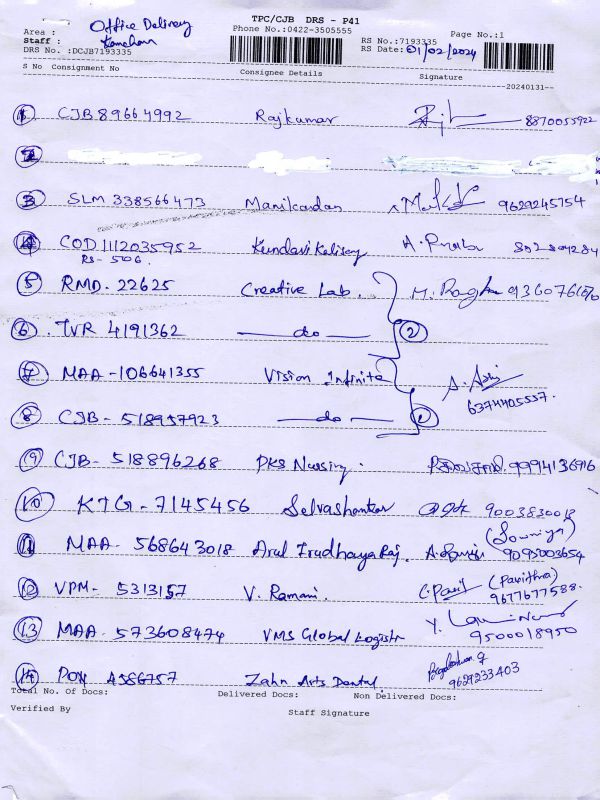 TPC/CJB DRS - P41
Area : Office Delivery
Phone No.:0422-3505555
Page No.:1
Staff :
RS No.:7193335
DRS No. :DCJB7193335
RS Date: 01/02/2024
S No Consignment No Consignee Details Signature
20240131--
1 CJB 89664992 Rajkumar 8870055922
2
3 SLM 338566473 Manikandan 9629245754
4 COD 1112035952
RS- 506
5 RMD- 22625 Creative Lab.
6 TVR 4191362 do 2
7 MAA -106641355 Vision Infinite
6374405557.
8 CJB- 518957923 do
9 CJB- 518896268 PKS Nursing.
10 KTG-7145456 Selvashankar 9003830018
11 MAA- 568643018 Arul IrudhayaRaj. (Sowniya)
9095003654
12 VPM- 5313157 V. Ramani. (Pavithra)
9677677588.
13 MAA- 573608474 VMS Global Logistr
9500018950
14 4586757 Zahn Arts Dental.
9629233403
Total No. of Docs: Delivered Docs: Non Delivered Docs:
Verified By Staff Signature